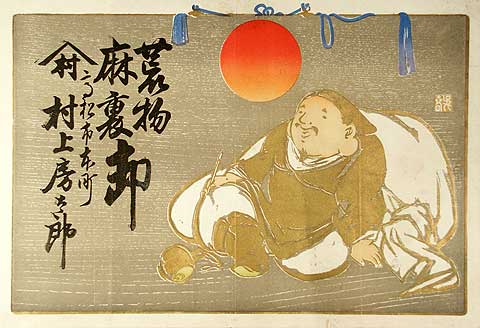 荒物
麻裏卸
高松市本町
村
村上房太郎